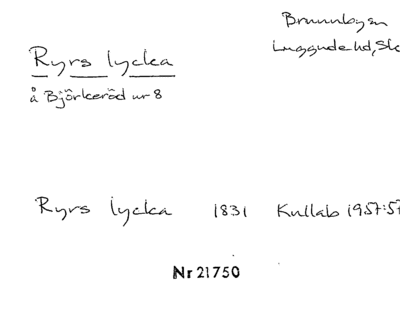 Brunnby sn
Luggude hd, Sk
Ryrs lycka
å Björkeröd nr 8
Ryrs lycka 1831 Kullab 1957:57
Nr 21750